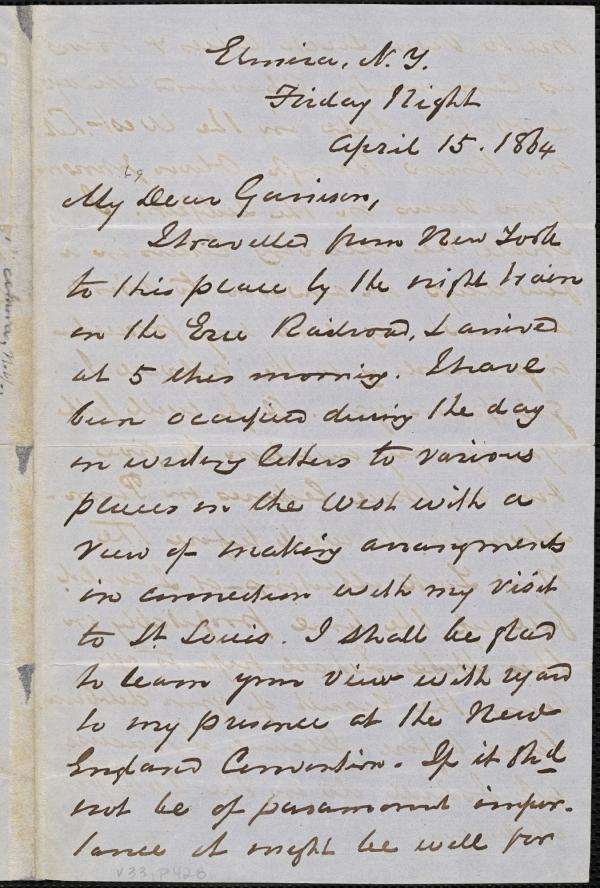 Elmira, N.Y.
Friday Night
April 15. 1864
My Dear Garrison,
I travelled from New York
to this place by the night train
on the Erie Railroad, & arrived
at 5 this morning. I have
been occupied during the day
in writing letters to various
places in the West with a
view of making arrangements
in connection with my visit
to St. Louis. I shall be glad
to learn your view with regard
to my presence at the New
England Convention. If it shd
not be of paramount impor-
tance it might be well for
V33, P42B